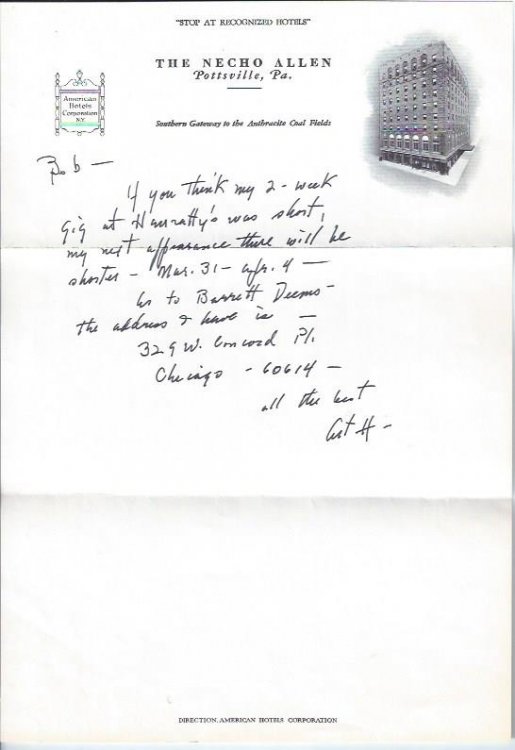 "STOP AT RECOGNIZED HOTELS"
THE NECHO ALLEN
Pottsville, Pa.
American
Hotels
Corporation
N.Y.
Southern Gateway to the Anthracite Coal Fields
Bob —
If you think my 2-week
gig at Hanratty's was short,
my next appearance there will be
shorter - Mar. 31 - Apr. 4 —
As to Barrett Deems -
the address I have is —
329 W. Concord Pl.
Chicago - 60614 -
all the best
Art H -
DIRECTION, AMERICAN HOTELS CORPORATION